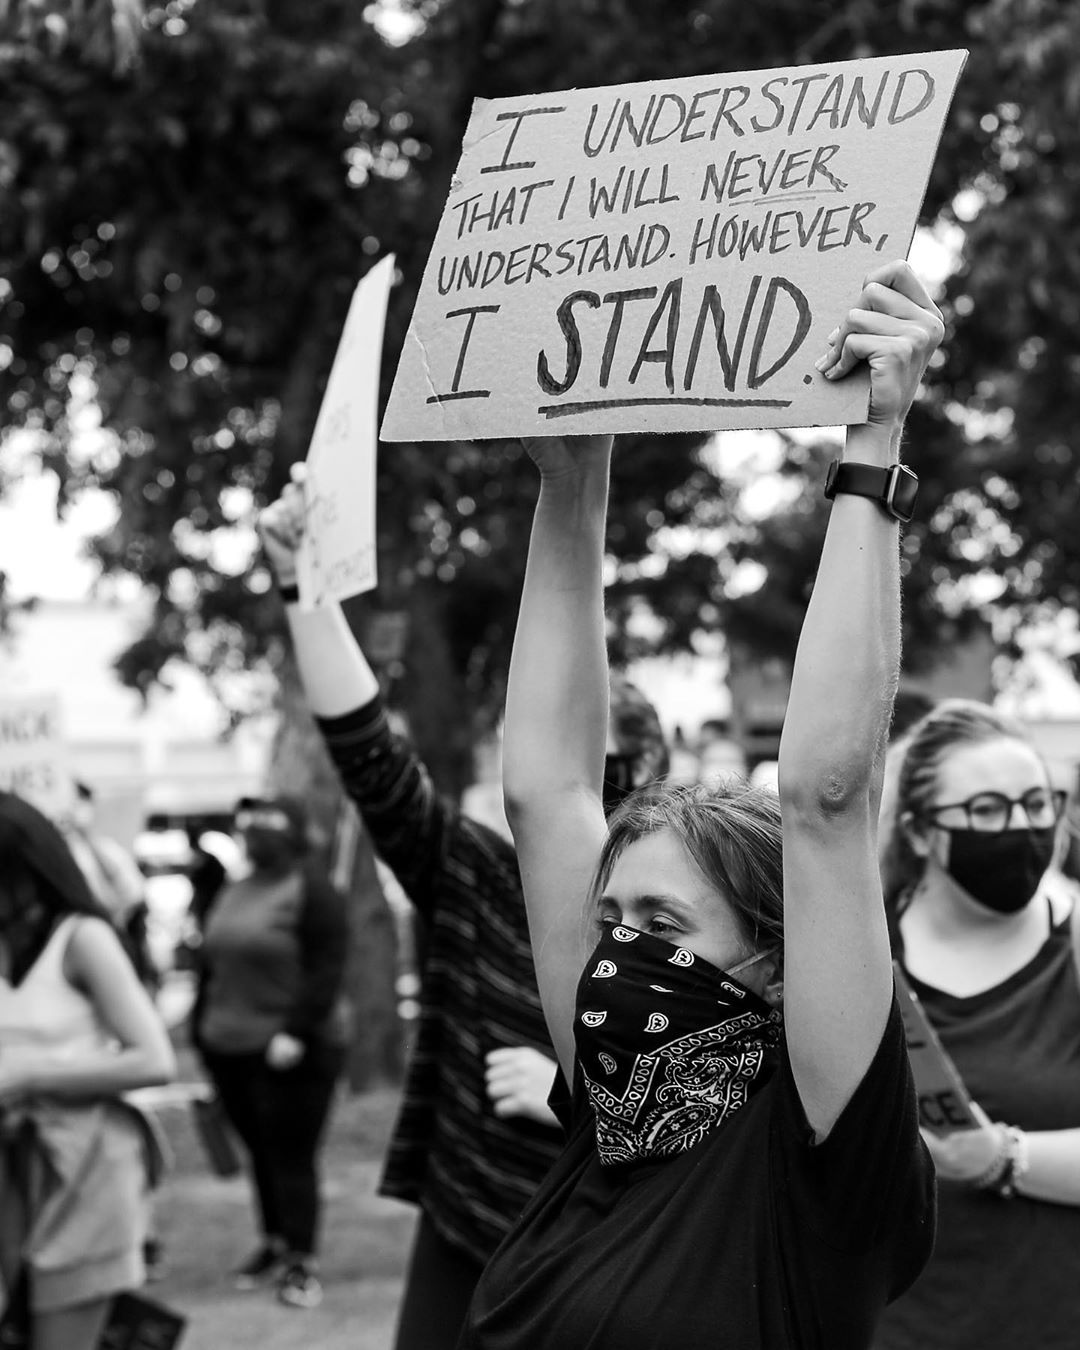 I UNDERSTAND
THAT I WILL NEVER
UNDERSTAND. HOWEVER,
I STAND.
CE